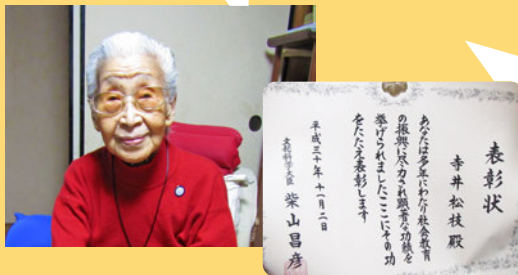 表彰状
寺井松枝殿
あなたは多年にわたり社会教育
の振興に尽力され顕著な功績を
挙げられましたここにその功
をたたえ表彰します
平成三十年十一月二日
文部科学大臣 柴山昌彦